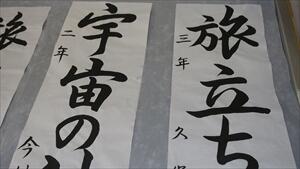 旅立ち
三年
久
宇宙の
二年
今
旅